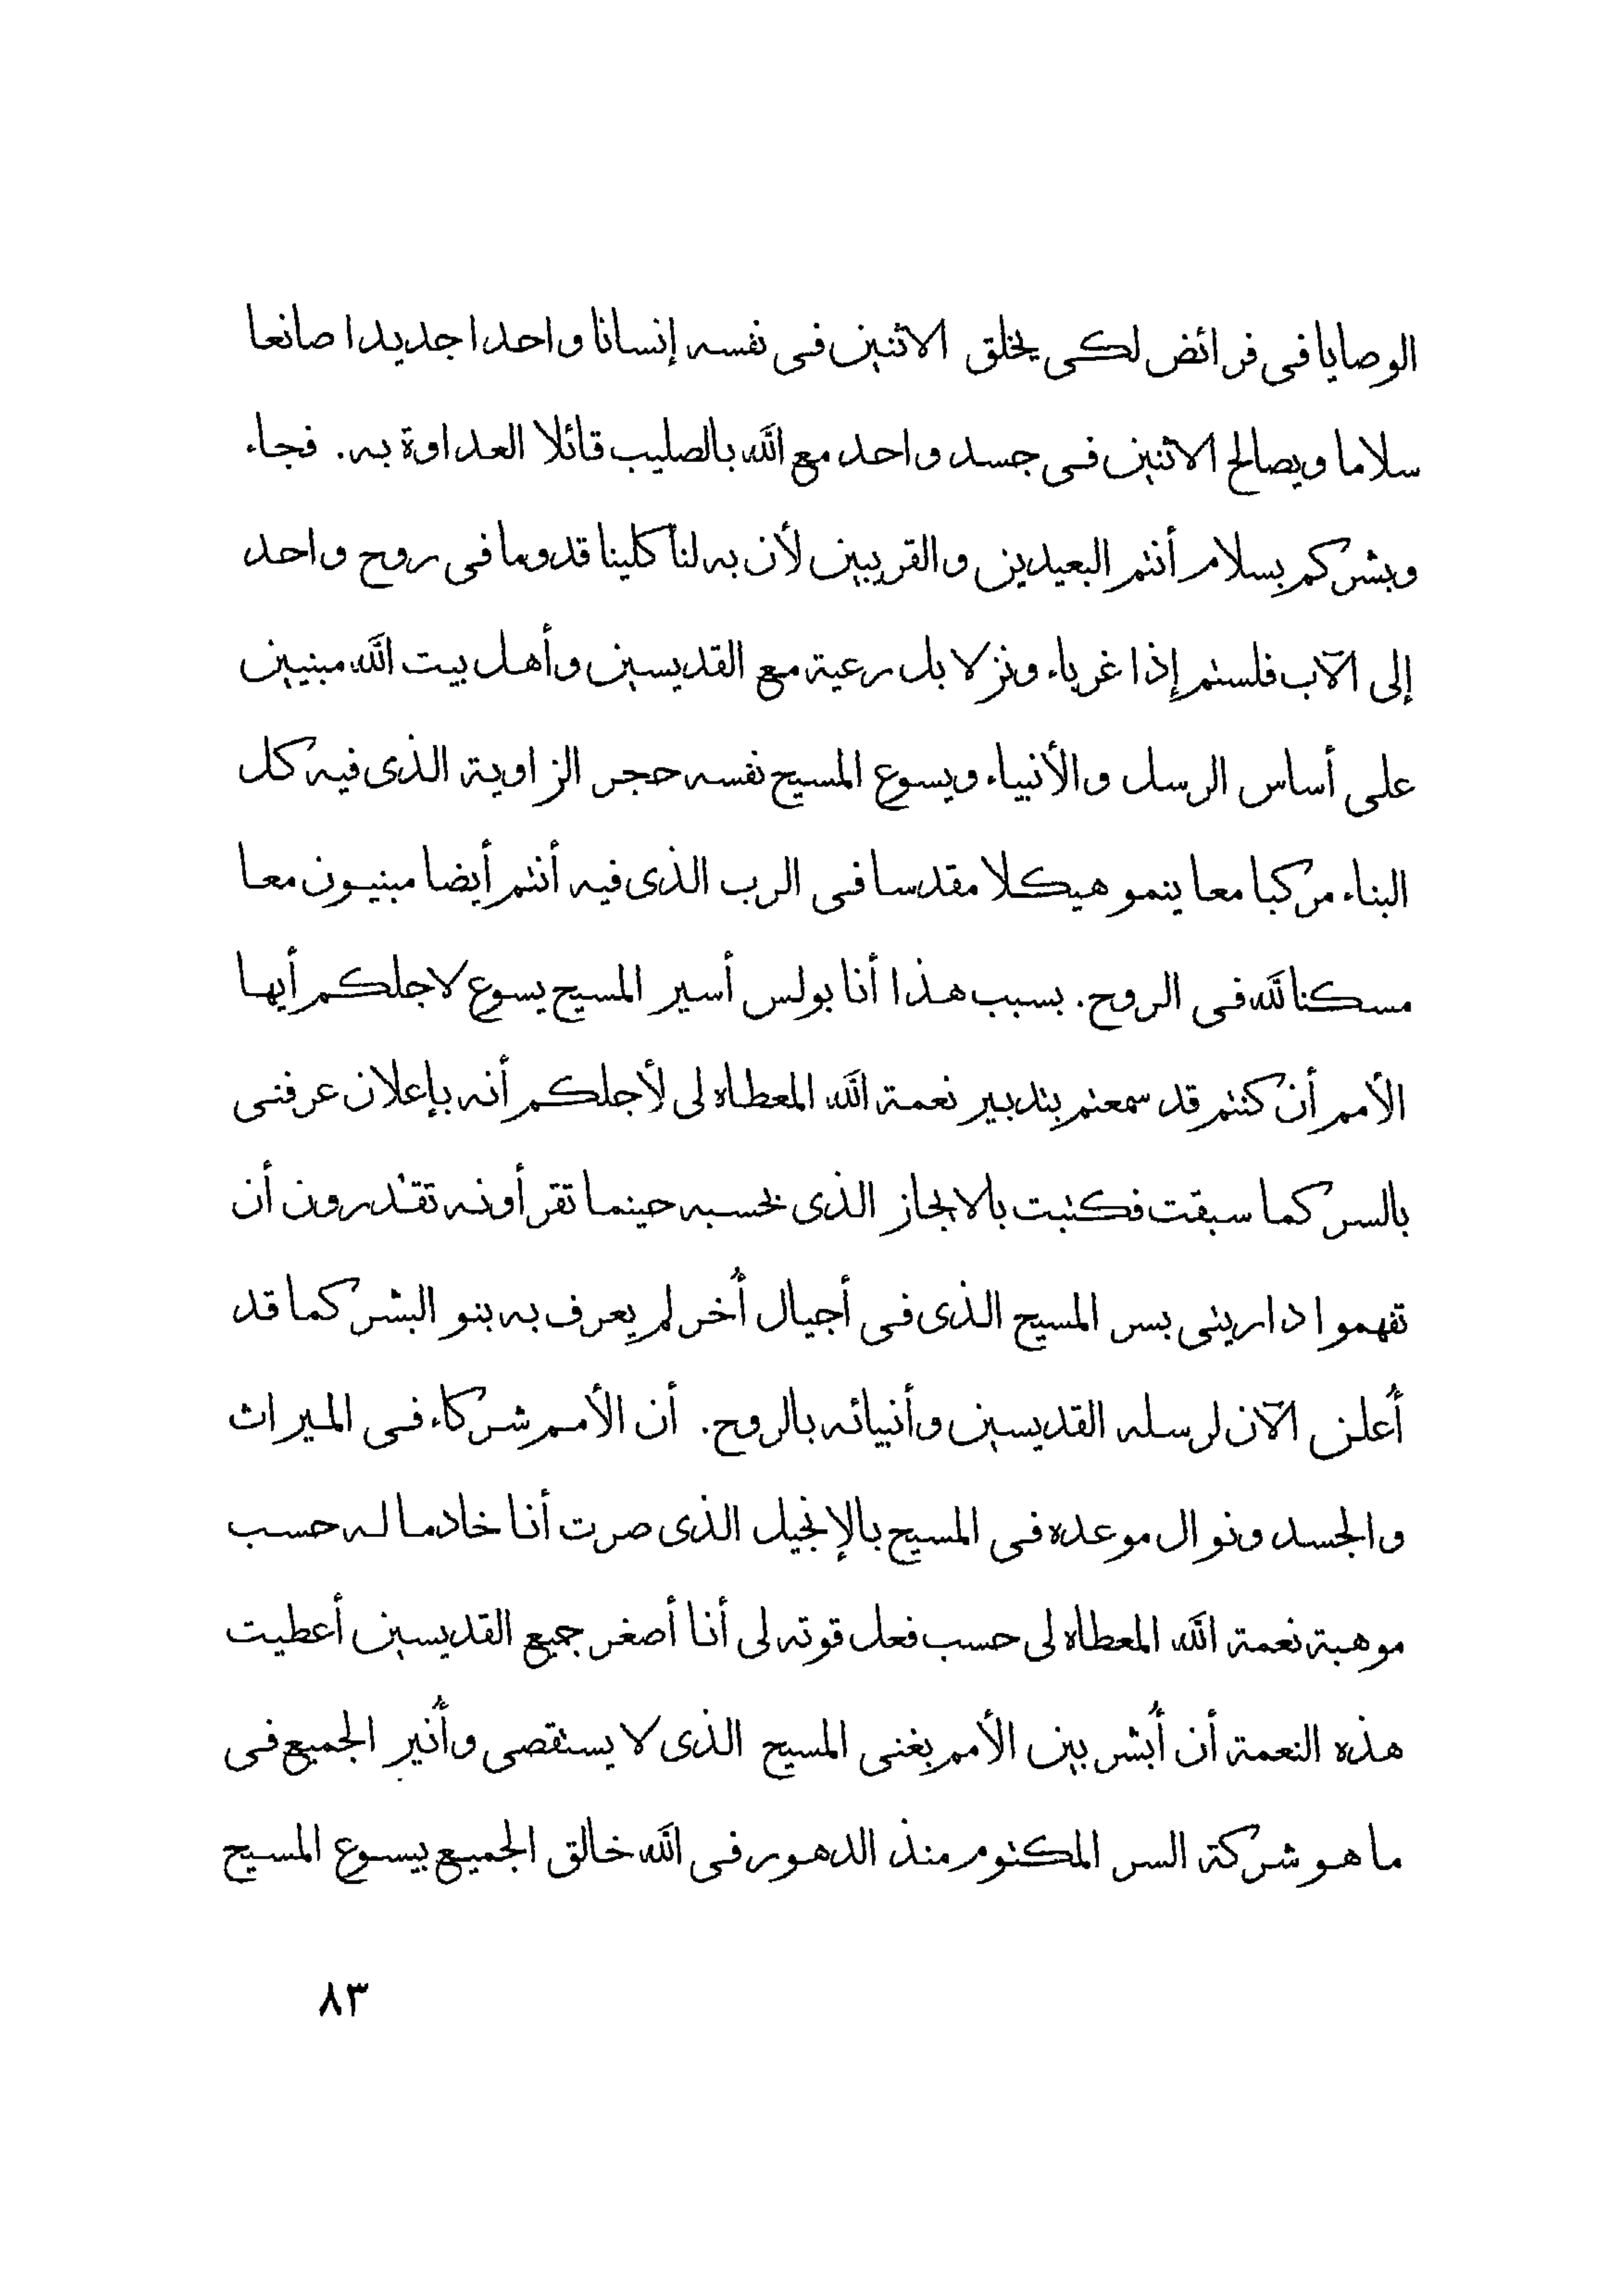 الوصايا فى فرائض لكى يخلق الاثنين فى نفسه إنسانا واحدا جديدا صانعا
سلاما ويصالح الاثنين فى جسد واحد مع الله بالصليب قائلا العداوة به. فجاء
وبشركم بسلام أنتم البعيدين والقريبين لأن به لنا كلينا قدوما فى روح واحد
إلى الآب فلستم إذا غرباء ونزلا بل رعية مع القديسين وأهل بيت الله مبنيين
على أساس الرسل والأنبياء ويسوع المسيح نفسه حجر الزاوية الذى فيه كل
البناء مركبا معا ينمو هيكلا مقدسا فى الرب الذى فيه أنتم أيضا مبنيون معا
مسكنا لله فى الروح. بسبب هذا أنا بولس أسير المسيح يسوع لاجلكم أيها
الأمم أن كنتم قد سمعتم بتدبير نعمة الله المعطاه لى لأجلكم أنه بإعلان عرفنى
بالسر كما سبقت فكتبت بالايجاز الذى بحسبه حينما تقرأونه تقدرون أن
تفهموا دارينى بسر المسيح الذى فى أجيال أُخر لم يعرف به بنو البشر كما قد
أُعلن الآن لرسله القديسين وأنبيائه بالروح. أن الأمم شركاء فى الميراث
والجسد ونوال موعده فى المسيح بالإنجيل الذى صرت أنا خادما له حسب
موهبة نعمة الله المعطاه لى حسب فعل قوته لى أنا أصغر جميع القديسين أعطيت
هذه النعمة أن أُبشر بين الأمم بغنى المسيح الذى لا يستقصى وأُنير الجميع فى
ما هو شركة السر المكتوم منذ الدهور فى الله خالق الجميع بيسوع المسيح
٨٣